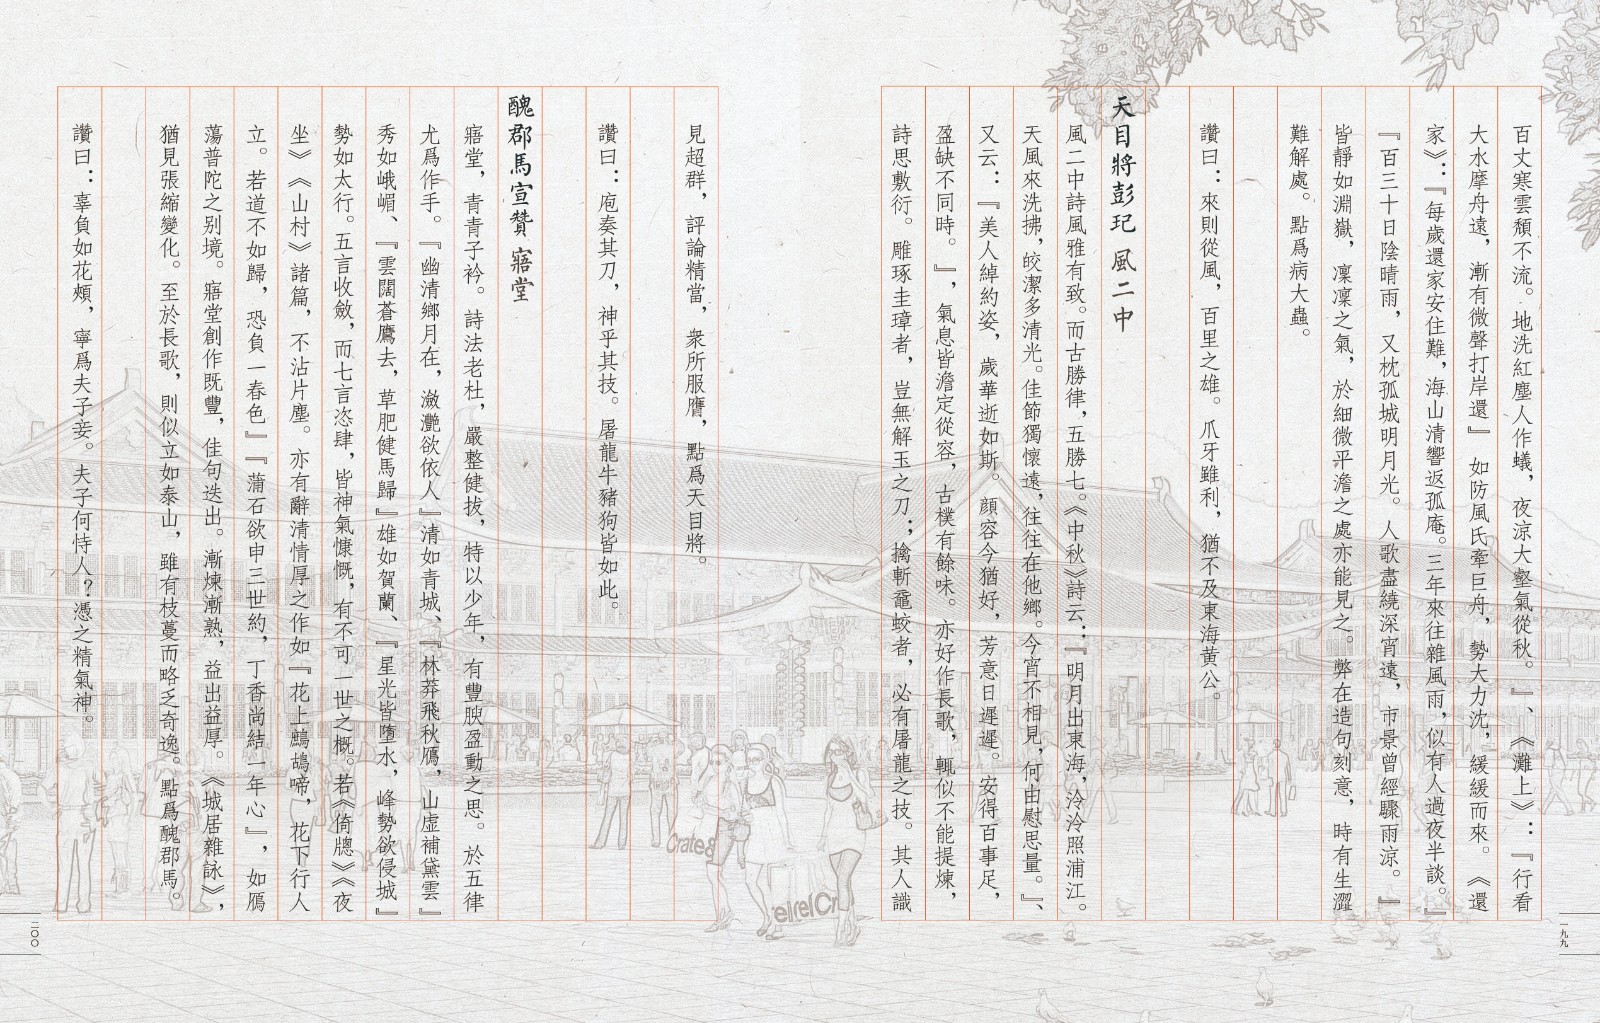 百丈寒雲頹不流。地洗紅塵人作蟻，夜涼大壑氣從秋。』、《灘上》：『行看
大水摩舟遠，漸有微聲打岸還』如防風氏牽巨舟，勢大力沈，緩緩而來。《還
家》：『每歲還家安住難，海山清響返孤庵。三年來往雜風雨，似有人過夜半談。』
『百三十日陰晴雨，又枕孤城明月光。人歌盡繞深宵遠，市景曾經驟雨涼。』
皆靜如淵嶽，凜凜之氣，於細微平澹之處亦能見之。弊在造句刻意，時有生澀
難解處。點爲病大蟲。
讚曰：來則從風，百里之雄。爪牙雖利，猶不及東海黃公。
天目將彭玘 風二中
風二中詩風雅有致。而古勝律，五勝七。《中秋》詩云：『明月出東海，泠泠照浦江。
天風來洗拂，皎潔多清光。佳節獨懷遠，往往在他鄉。今宵不相見，何由慰思量。』、
又云：『美人綽約姿，歲華逝如斯。顏容今猶好，芳意日遲遲。安得百事足，
盈缺不同時。』，氣息皆澹定從容，古樸有餘味。亦好作長歌，輒似不能提煉，
詩思敷衍。雕琢圭璋者，豈無解玉之刀；擒斬黿蛟者，必有屠龍之技。其人識
見超群，評論精當，衆所服膺，點爲天目將。
讚曰：庖奏其刀，神乎其技。屠龍牛豬狗皆如此。
醜郡馬宣贊 寤堂
寤堂，青青子衿。詩法老杜，嚴整健拔，特以少年，有豐腴盈動之思。於五律
尤爲作手。『幽清鄉月在，瀲灩欲依人』清如青城、『林莽飛秋鴈，山虛補黛雲』
秀如峨嵋、『雲闊蒼鷹去，草肥健馬歸』雄如賀蘭、『星光皆墮水，峰勢欲侵城』
勢如太行。五言收斂，而七言恣肆，皆神氣慷慨，有不可一世之概。若《倚牕》《夜
坐》《山村》諸篇，不沾片塵。亦有辭清情厚之作如『花上鷓鴣啼，花下行人
立。若道不如歸，恐負一春色』『蒲石欲申三世約，丁香尚結一年心』，如鴈
蕩普陀之別境。寤堂創作既豐，佳句迭出。漸煉漸熟，益出益厚。《城居雜詠》，
猶見張縮變化。至於長歌，則似立如泰山，雖有枝蔓而略乏奇逸。點爲醜郡馬。
讚曰：辜負如花頰，寧爲夫子妾。夫子何恃人？憑之精氣神。
一九九
二〇〇